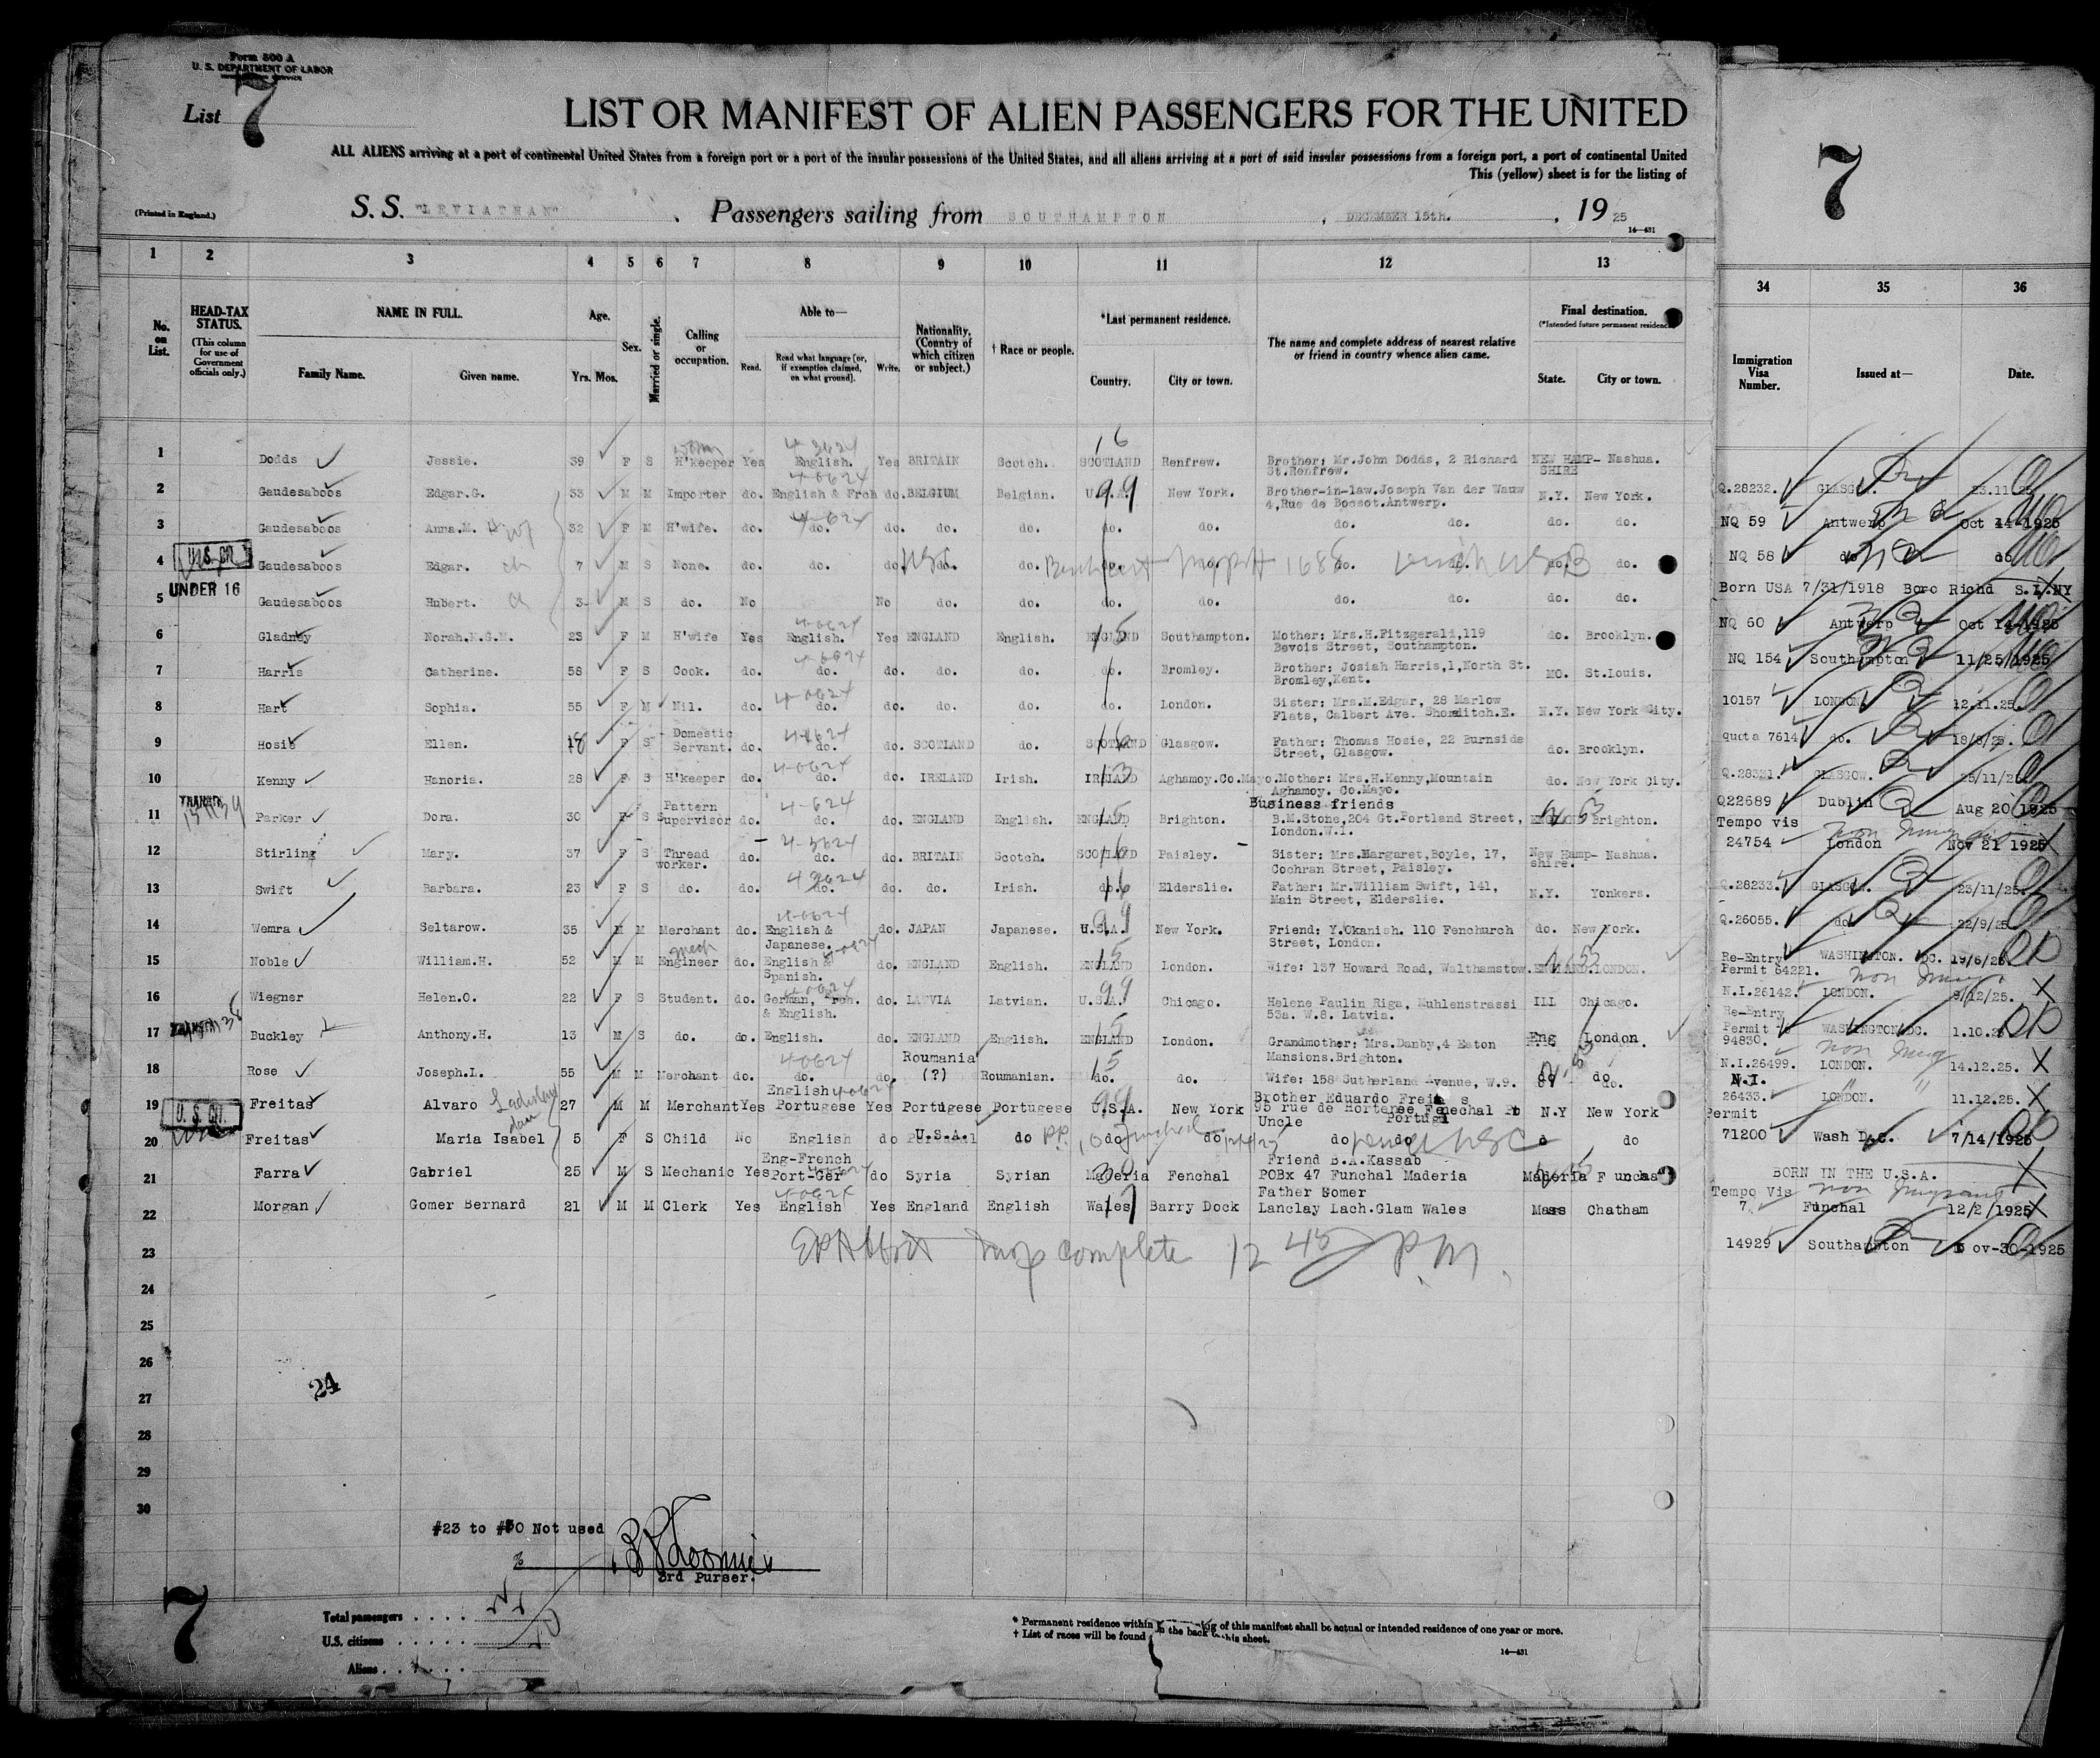 Form 500 A
U. S. DEPARTMENT OF LABOR
List 7
LIST OR MANIFEST OF ALIEN PASSENGERS FOR THE UNITED
ALL ALIENS arriving at a port of continental United States from a foreign port or a port of the insular possessions of the United States, and all aliens arriving at a port of said insular possessions from a foreign port, a port of continental United
This (yellow) sheet is for the listing of
(Printed in England.) S. S. "LEVIATHAN" , Passengers sailing from SOUTHAMPTON , DECEMBER 15th. , 19 25
14—431
7
1 2 3 4 5 6 7 8 9 10 11 12 13 34 35 36
No. on List.
HEAD-TAX STATUS.
(This column for use of Government officials only.)
NAME IN FULL.
Family Name. Given name.
Age.
Yrs. Mos.
Sex.
Married or single.
Calling or occupation.
Able to—
Read. Read what language (or, if exemption claimed, on what ground). Write.
Nationality. (Country of which citizen or subject.)
† Race or people.
*Last permanent residence.
Country. City or town.
The name and complete address of nearest relative or friend in country whence alien came.
Final destination.
(*Intended future permanent residence.)
State. City or town.
Immigration Visa Number.
Issued at—
Date.
1 Dodds Jessie. 39 F S H'keeper Yes English. Yes BRITAIN Scotch. SCOTLAND Renfrew. Brother: Mr.John Dodds, 2 Richard St.Renfrew. NEW HAMP-SHIRE Nashua.
2 Gaudesaboos Edgar.G. 33 M M Importer do. English & Frch do. BELGIUM Belgian. U.S.A. New York. Brother-in-law.Joseph Van der Wauw 4,Rue de Bosset.Antwerp. N.Y. New York.
3 Gaudesaboos Anna.M. 32 F M H'wife. do. do. do. do. do. do. do. do. do. do. do.
4 U.S. CIT. Gaudesaboos Edgar. 7 M S None. do. do. do. do. do. do. do. do. do. do. do.
5 UNDER 16 Gaudesaboos Hubert. 3 M S do. No No do. do. do. do. do. do. do. do.
6 Gladney Norah.K.S.M. 23 F M H'wife Yes English. Yes ENGLAND English. ENGLAND Southampton. Mother: Mrs.H.Fitzgerald,119 Bevois Street, Southampton. do. Brooklyn.
7 Harris Catherine. 58 F S Cook. do. do. do. do. do. do. Bromley. Brother: Josiah Harris,1,North St. Bromley,Kent. MO. St.Louis.
8 Hart Sophia. 55 F M Nil. do. do. do. do. do. do. London. Sister: Mrs.M.Edgar, 28 Marlow Flats, Calbert Ave. Shorditch.E. N.Y. New York City.
9 Hosie Ellen. 18 F S Domestic Servant. do. do. do. SCOTLAND do. SCOTLAND Glasgow. Father: Thomas Hosie, 22 Burnside Street, Glasgow. do. Brooklyn.
10 Kenny Hanoria. 28 F S H'keeper do. do. do. IRELAND Irish. IRELAND Aghamoy.Co.Mayo. Mother: Mrs.H.Kenny,Mountain Aghamoy. Co.Mayo. do. New York City.
11 TRANSIT Parker Dora. 30 F S Pattern Supervisor do. do. do. ENGLAND English. ENGLAND Brighton. Business friends B.M.Stone,204 Gt.Portland Street, London.W.1. ENGLAND Brighton.
12 Stirling Mary. 37 F S Thread worker. do. do. do. BRITAIN Scotch. SCOTLAND Paisley. Sister: Mrs.Margaret,Boyle, 17, Cochran Street, Paisley. New Hamp-shire. Nashua.
13 Swift Barbara. 23 F S do. do. do. do. do. Irish. do. Elderslie. Father: Mr.William Swift, 141, Main Street, Elderslie. N.Y. Yonkers.
14 Wemra Seltarow. 35 M M Merchant do. English & Japanese. do. JAPAN Japanese. U.S.A. New York. Friend: Y.Okanish. 110 Fenchurch Street, London. do. New York.
15 Noble William.H. 52 M M Engineer do. English & Spanish. do. ENGLAND English. ENGLAND London. Wife: 137 Howard Road, Walthamstow. ENGLAND. LONDON.
16 Wiegner Helen.O. 22 F S Student. do. German, Frch. & English. do. LATVIA Latvian. U.S.A. Chicago. Helene Paulin Riga, Muhlenstrassi 53a. W.8. Latvia. ILL Chicago.
17 TRANSIT Buckley Anthony.H. 13 M S do. do. English. do. ENGLAND English. ENGLAND London. Grandmother: Mrs.Danby,4 Eaton Mansions.Brighton. Eng London.
18 Rose Joseph.L. 55 M M Merchant do. do. do. Roumania (?) Roumanian. do. do. Wife: 158 Sutherland Avenue, W.9. do.
19 Freitas Alvaro 27 M M Merchant Yes English Portugese Yes Portugese Portugese U.S.A. New York Brother Eduardo Freitas 95 rue de Hortense Fenechal Portugl N.Y New York
20 U.S. CIT. Freitas Maria Isabel 5 F S Child No English do U.S.A. do do do Uncle do do do
21 Farra Gabriel 25 M S Mechanic Yes Eng-French Port-Ger do Syria Syrian Maderia Fenchal Friend B.A.Kassab POBx 47 Funchal Maderia Maderia Funchas
22 Morgan Gomer Bernard 21 M M Clerk Yes English Yes England English Wales Barry Dock Father Gomer Lanclay Lach.Glam Wales Mass Chatham
23 complete 12 45 P.M.
24
25
26
27
28
29
30
24
Q.28232. GLASGOW. 23.11.25.
NQ 59 Antwerp Oct 14-1925
NQ 58 do do
Born USA 7/31/1918 Boro Richd S.I.NY
NQ 60 Antwerp Oct 14-1925
NQ 154 Southampton 11/25/1925
10157 LONDON 12.11.25.
quota 7614 do. 18/8/25.
Q.28321. GLASGOW. 25/11/25
Q22689 Dublin Aug 20 1925
Tempo vis 24754 London Nov 21 1925
Q.28233. GLASGOW. 23/11/25.
Q.26055. do 22/9/25
Re-Entry Permit 64221. WASHINGTON. DC. 19/6/25.
N.I.26142. LONDON. 9/12/25.
Re-Entry Permit 94830. WASHINGTON DC. 1.10.25
N.I.26499. LONDON. 14.12.25.
N.I. 26433. LONDON. 11.12.25.
Permit 71200 Wash D.C. 7/14/1925
BORN IN THE U.S.A.
Tempo Vis 7 Funchal 12/2/1925
14929 Southampton Nov-30-1925
#23 to #30 Not used
3rd Purser.
7
Total passengers . . . .
U.S. citizens . . . . .
Aliens . . . . .
* Permanent residence within of this manifest shall be actual or intended residence of one year or more.
† List of races will be found on the back of this sheet.
14—431